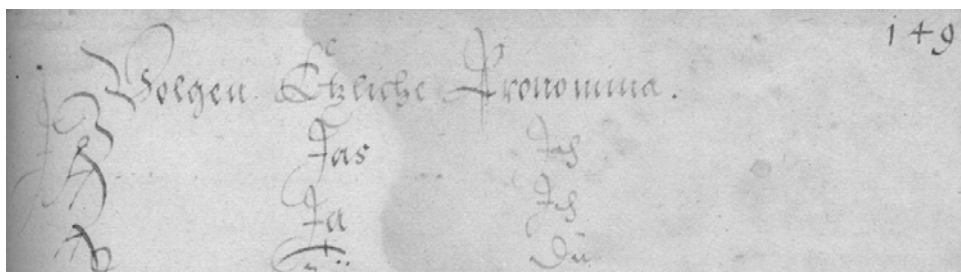 149
Volgen Etzliche Pronomina.
Jas Jch
Ja Jch
Du